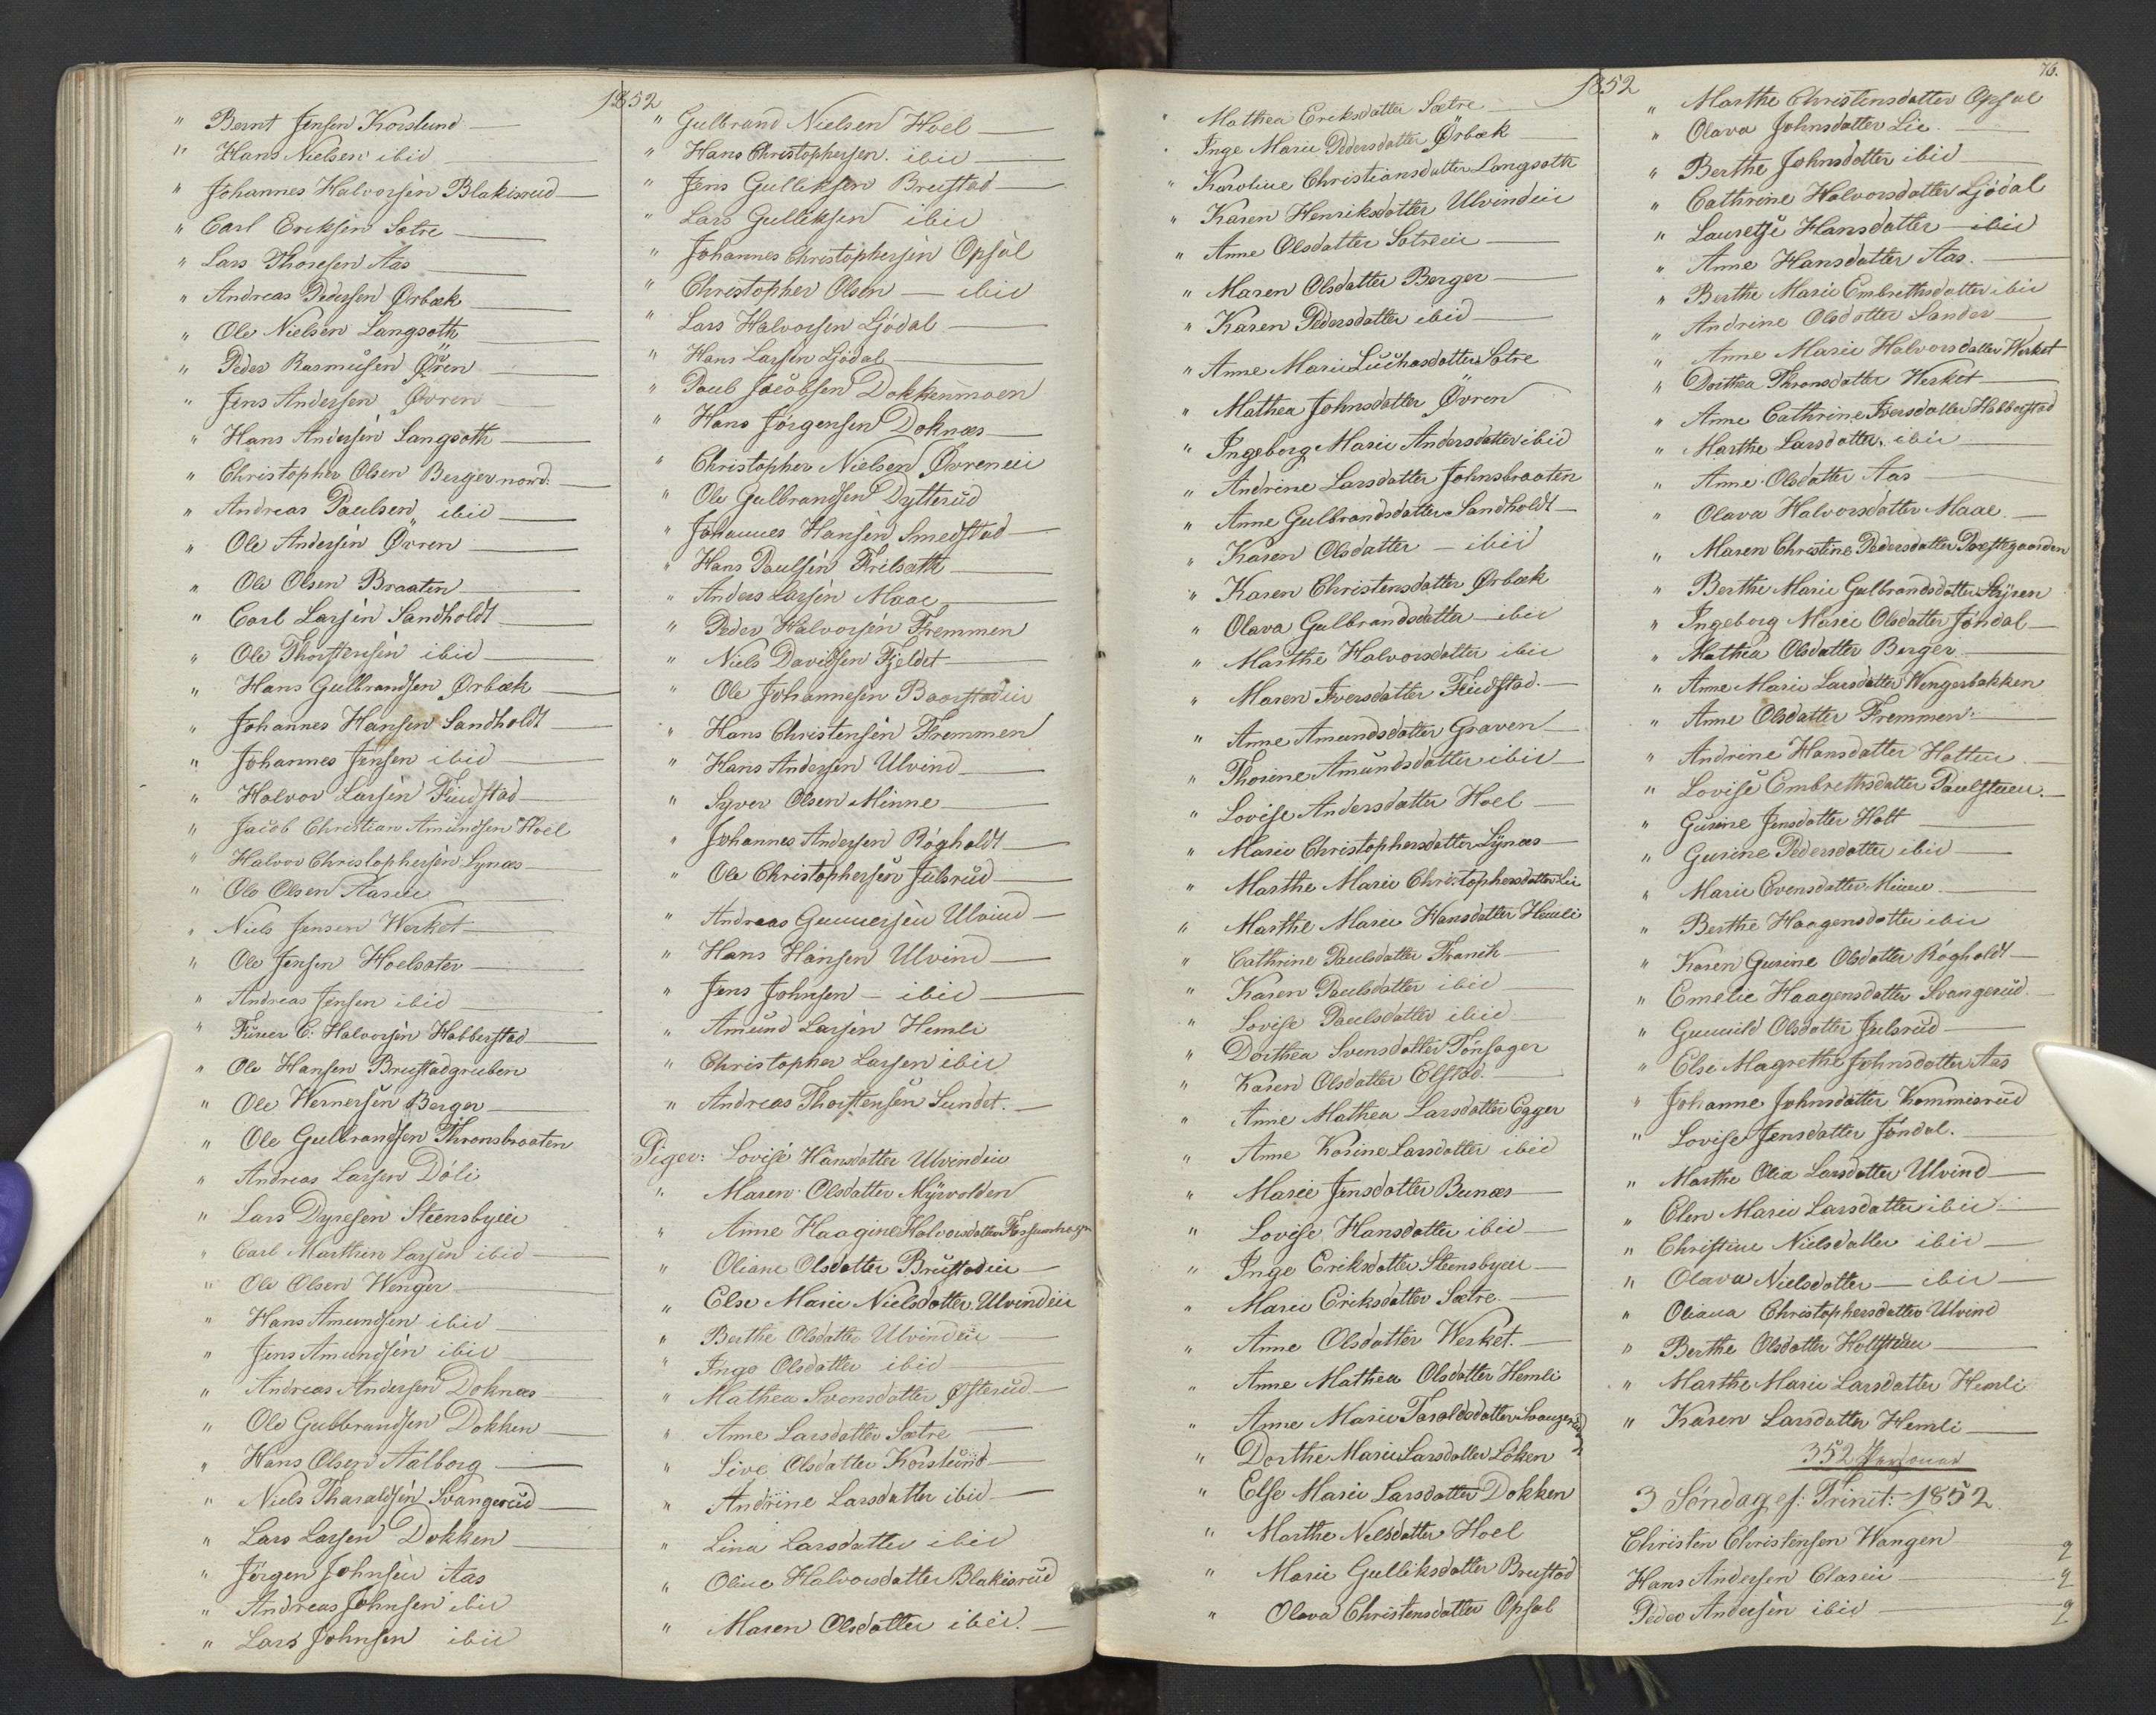 1852
" Bernt Jensen Korslund —
" Hans Nielsen ibid —
" Johannes Halvorsen Blakisrud —
" Carl Eriksen Sætre —
" Lars Thoresen Aas —
" Andreas Pedersen Ørbæk —
" Ole Nielsen Langsæth —
" Peder Rasmusen Øvren —
" Jens Andersen Øvren —
" Hans Andersen Langsæth —
" Christopher Olsen Berger nord. —
" Andreas Paulsen ibid —
" Ole Andersen Øvren —
" Ole Olsen Braaten —
" Carl Larsen Sandholdt —
" Ole Thorstensen ibid —
" Hans Gulbrandsen Ørbæk —
" Johannes Hansen Sandholdt —
" Johannes Jensen ibid —
" Halvor Larsen Finstad —
" Jacob Christian Amundsen Hoel
" Halvor Christophersen Lynæs —
" Ole Olsen Aaseie —
" Niels Jensen Werket —
" Ole Jensen Hoelsæter —
" Andreas Jensen ibid —
" C. Halvorsen Habberstad —
" Ole Hansen Brustadgruben
" Ole Wernersen Berger —
" Ole Gulbrandsen Thronsbraaten
" Andreas Larsen Döli
" Lars Dyresen Steensbyeie
" Carl Marthin Larsen ibid —
" Ole Olsen Wenger —
" Hans Amundsen ibid —
" Jens Amundsen ibid —
" Andreas Andersen Doknæs —
" Ole Gulbrandsen Dokken —
" Hans Olsen Aalborg —
" Niels Tharaldsen Svangerud —
" Lars Larsen Dokken —
" Jörgen Johnsen Aas
" Andreas Johnsen ibid
" Lars Johnsen ibid
" Gulbrand Nielsen Hoel —
" Hans Christophersen ibid —
" Jens Gulliksen Brustad —
" Lars Gulliksen ibid
" Johannes Christophersen Opsal
" Christopher Olsen — ibid
" Lars Halvorsen Ljödal —
" Hans Larsen Ljödal —
" Paul Jacobsen Dokkenmoen
" Hans Jörgensen Doknæs —
" Christopher Nielsen Øvreneie
" Ole Gulbrandsen Dytterud
" Johannes Hansen Smedstad —
" Hans Paulsen Frilsæth —
" Anders Larsen Maae —
" Peder Halvorsen Fremmen
" Niels Davidsen Fjeldet —
" Ole Johannesen Baarstadeie
" Hans Christensen Fremmen
" Hans Andersen Ulvind —
" Syver Olsen Minne —
" Johannes Andersen Rögholdt —
" Ole Christophersen Julsrud —
" Andreas Gunnersen Ulvind —
" Hans Hansen Ulvind —
" Jens Johnsen — ibid —
" Amund Larsen Hemli
" Christopher Larsen ibid
" Andreas Thorstensen Sundet. —
Piger: Lovise Hansdatter Ulvindeie
" Maren Olsdatter Myrvolden
" Anne Haagine Halvorsdatter
" Oliane Olsdatter Brustadeie —
" Else Marie Nielsdatter Ulvindeie
" Berthe Olsdatter Ulvindeie —
" Inge Olsdatter ibid —
" Mathea Svensdatter Østerud —
" Anne Larsdatter Sætre —
" Live Olsdatter Korslund —
" Andrine Larsdatter ibid —
" Lina Larsdatter ibid
" Oline Halvorsdatter Blakisrud
" Maren Olsdatter ibid. —
1852
76.
" Mathea Eriksdatter Sætre —
" Inge Marie Pedersdatter Ørbæk —
" Karoline Christiansdatter Langsæth
" Karen Henriksdatter Ulvindeie
" Anne Olsdatter Sætreeie —
" Maren Olsdatter Berger —
" Karen Pedersdatter ibid —
" Anne Marie Luchasdatter Sætre
" Mathea Johnsdatter Øvren
" Ingeborg Marie Andersdatter ibid
" Andrine Larsdatter Johnsbraaten
" Anne Gulbrandsdatter Sandholdt —
" Karen Olsdatter — ibid
" Karen Christensdatter Ørbæk
" Olava Gulbrandsdatter ibid
" Marthe Halvorsdatter ibid
" Maren Iversdatter Finstad. —
" Anne Amundsdatter Graven —
" Thorine Amundsdatter ibid —
" Lovise Andersdatter Hoel —
" Marie Christophersdatter Lynæs —
" Marthe Marie Christophersdatter Lie
" Marthe Marie Hansdatter Hemli
" Cathrine Paulsdatter Franik —
" Karen Paulsdatter ibid —
" Lovise Paulsdatter ibid —
" Dorthea Svensdatter Tönsager
" Karen Olsdatter Elstad. —
" Anne Mathea Larsdatter Egger
" Anne Karine Larsdatter ibid
" Marie Jensdatter Bunæs —
" Lovise Hansdatter ibid —
" Inge Eriksdatter Steensbyeie —
" Marie Eriksdatter Sætre. —
" Anne Olsdatter Werket. —
" Anne Mathea Olsdatter Hemli
" Anne Marie Taraldsdatter Svangerud
" Dorthe Marie Larsdatter Löken
" Else Marie Larsdatter Dokken
" Marthe Nilsdatter Hoel
" Marie Gulliksdatter Brustad
" Olava Christensdatter Opsal
" Marthe Christensdatter Opsal
" Olava Johnsdatter Lie. —
" Berthe Johnsdatter ibid —
" Cathrine Halvorsdatter Ljödal
" Lauretse Hansdatter — ibid
" Anne Hansdatter Aas. —
" Berthe Marie Embrethsdatter ibid
" Andrine Olsdatter Sander —
" Anne Marie Halvorsdatter Werket
" Dorthea Thronsdatter Werket —
" Anne Cathrine Iversdatter Habberstad
" Marthe Larsdatter ibid —
" Anne Olsdatter Aas —
" Olava Halvorsdatter Maae —
" Maren Christine Pedersdatter Præstegaarden
" Berthe Marie Gulbrandsdatter Styren
" Ingeborg Marie Olsdatter Jöndal —
" Mathea Olsdatter Berger —
" Anne Marie Larsdatter Wengerbakken
" Anne Olsdatter Fremmen —
" Andrine Hansdatter —
" Lovise Embrethsdatter Paulstuen. —
" Gusine Jensdatter Holt —
" Gusine Pedersdatter ibid —
" Marie Evensdatter Minne —
" Berthe Haagensdatter ibid
" Karen Gurine Olsdatter Rögholdt —
" Emelie Haagensdatter Svangerud. —
" Gunild Olsdatter Julsrud —
" Else Magrethe Johnsdatter Aas
" Johanne Johnsdatter Kommisrud
" Lovise Jensdatter Jöndal. —
" Marthe Olea Larsdatter Ulvind —
" Elen Marie Larsdatter ibid —
" Christine Nielsdatter ibid —
" Olava Nielsdatter — ibid —
" Oliana Christophersdatter Ulvind
" Berthe Olsdatter Holtstuen —
" Marthe Marie Larsdatter Hemli
" Karen Larsdatter Hemli —
352 Personer
3 Söndag ef: Trinit: 1852.
Christen Christensen Wangen — q
Hans Andersen — q
Peder Andersen ibid — q